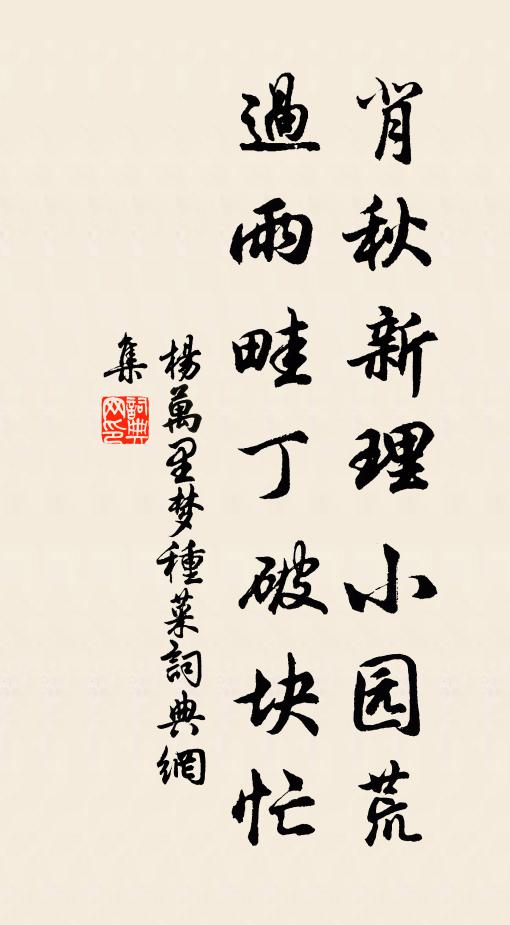 肖秋新理小园荒
過雨畦丁破块忙
楊萬里梦種菜詞典網
集
詞典
网印